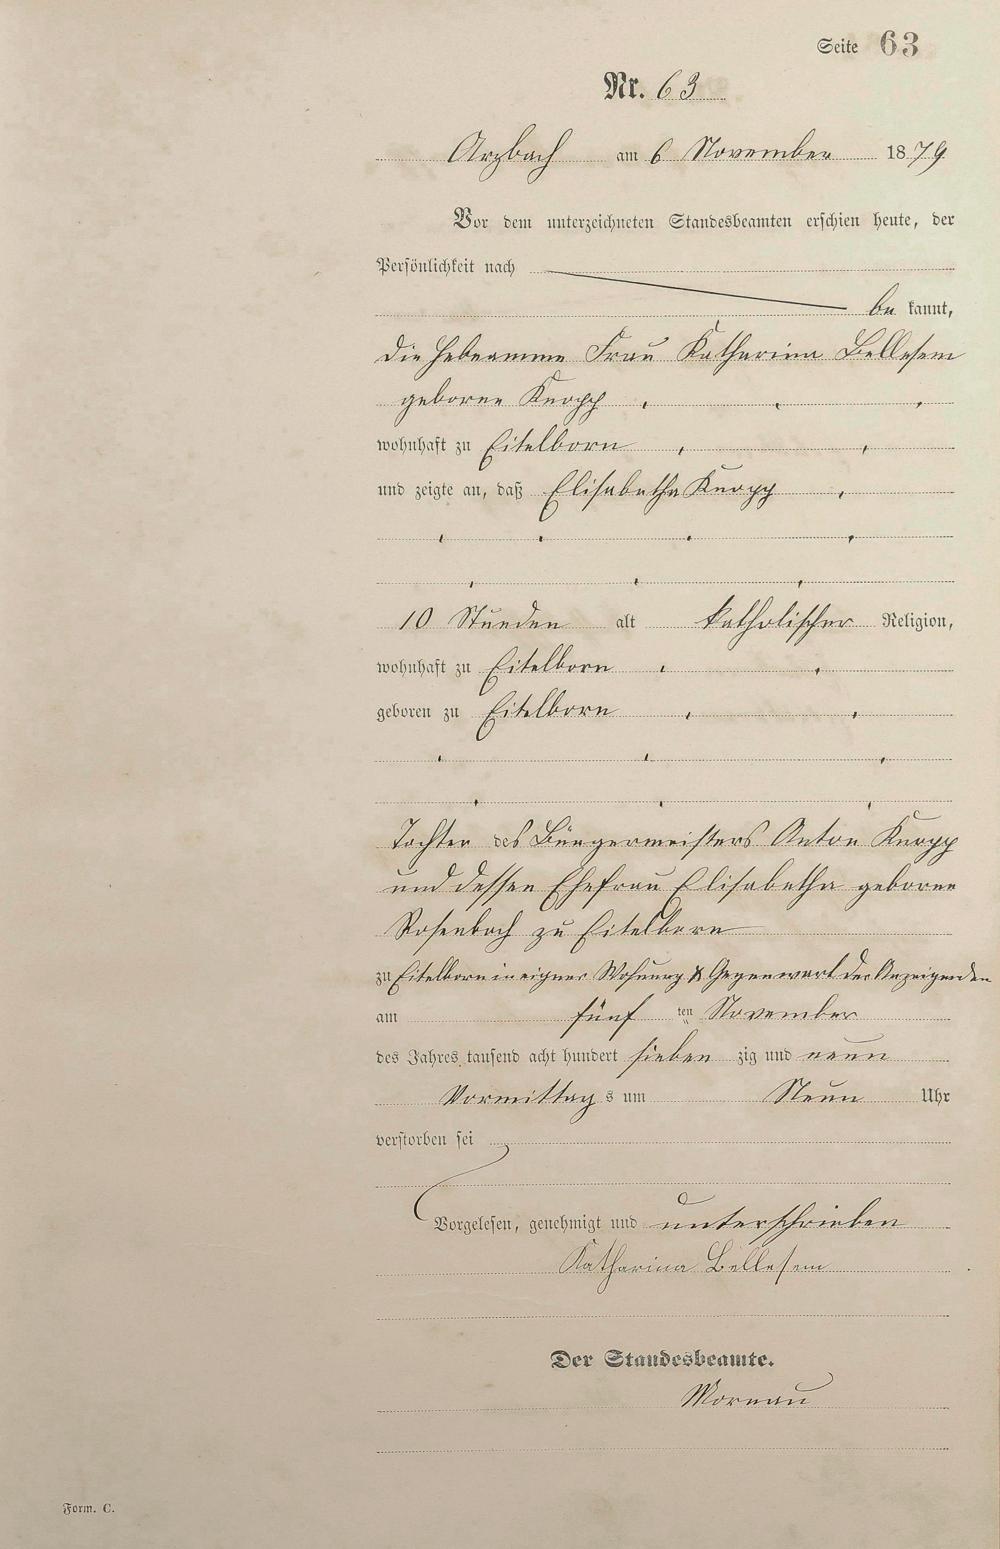 Seite 63
Nr. 63
Arzbach am 6 November 1879
Vor dem unterzeichneten Standesbeamten erschien heute, der
Persönlichkeit nach
be kannt,
die Hebeamme Frau Katharina Bellesem
geborne Knopp
wohnhaft zu Eitelborn
und zeigte an, daß Elisabetha Knopp
10 Stunden alt katholischer Religion,
wohnhaft zu Eitelborn
geboren zu Eitelborn
Tochter des Bürgermeisters Anton Knopp
und dessen Ehefrau Elisabetha geborne
Rosenbach zu Eitelborn
zu Eitelborn in eigner Wohnung & Gegenwart der Anzeigenden
am fünf ten November
des Jahres tausend acht hundert sieben zig und neun
Vormittag s um Neun Uhr
verstorben sei
Vorgelesen, genehmigt und unterschrieben
Katharina Bellesem
Der Standesbeamte.
Mornau
Form. C.